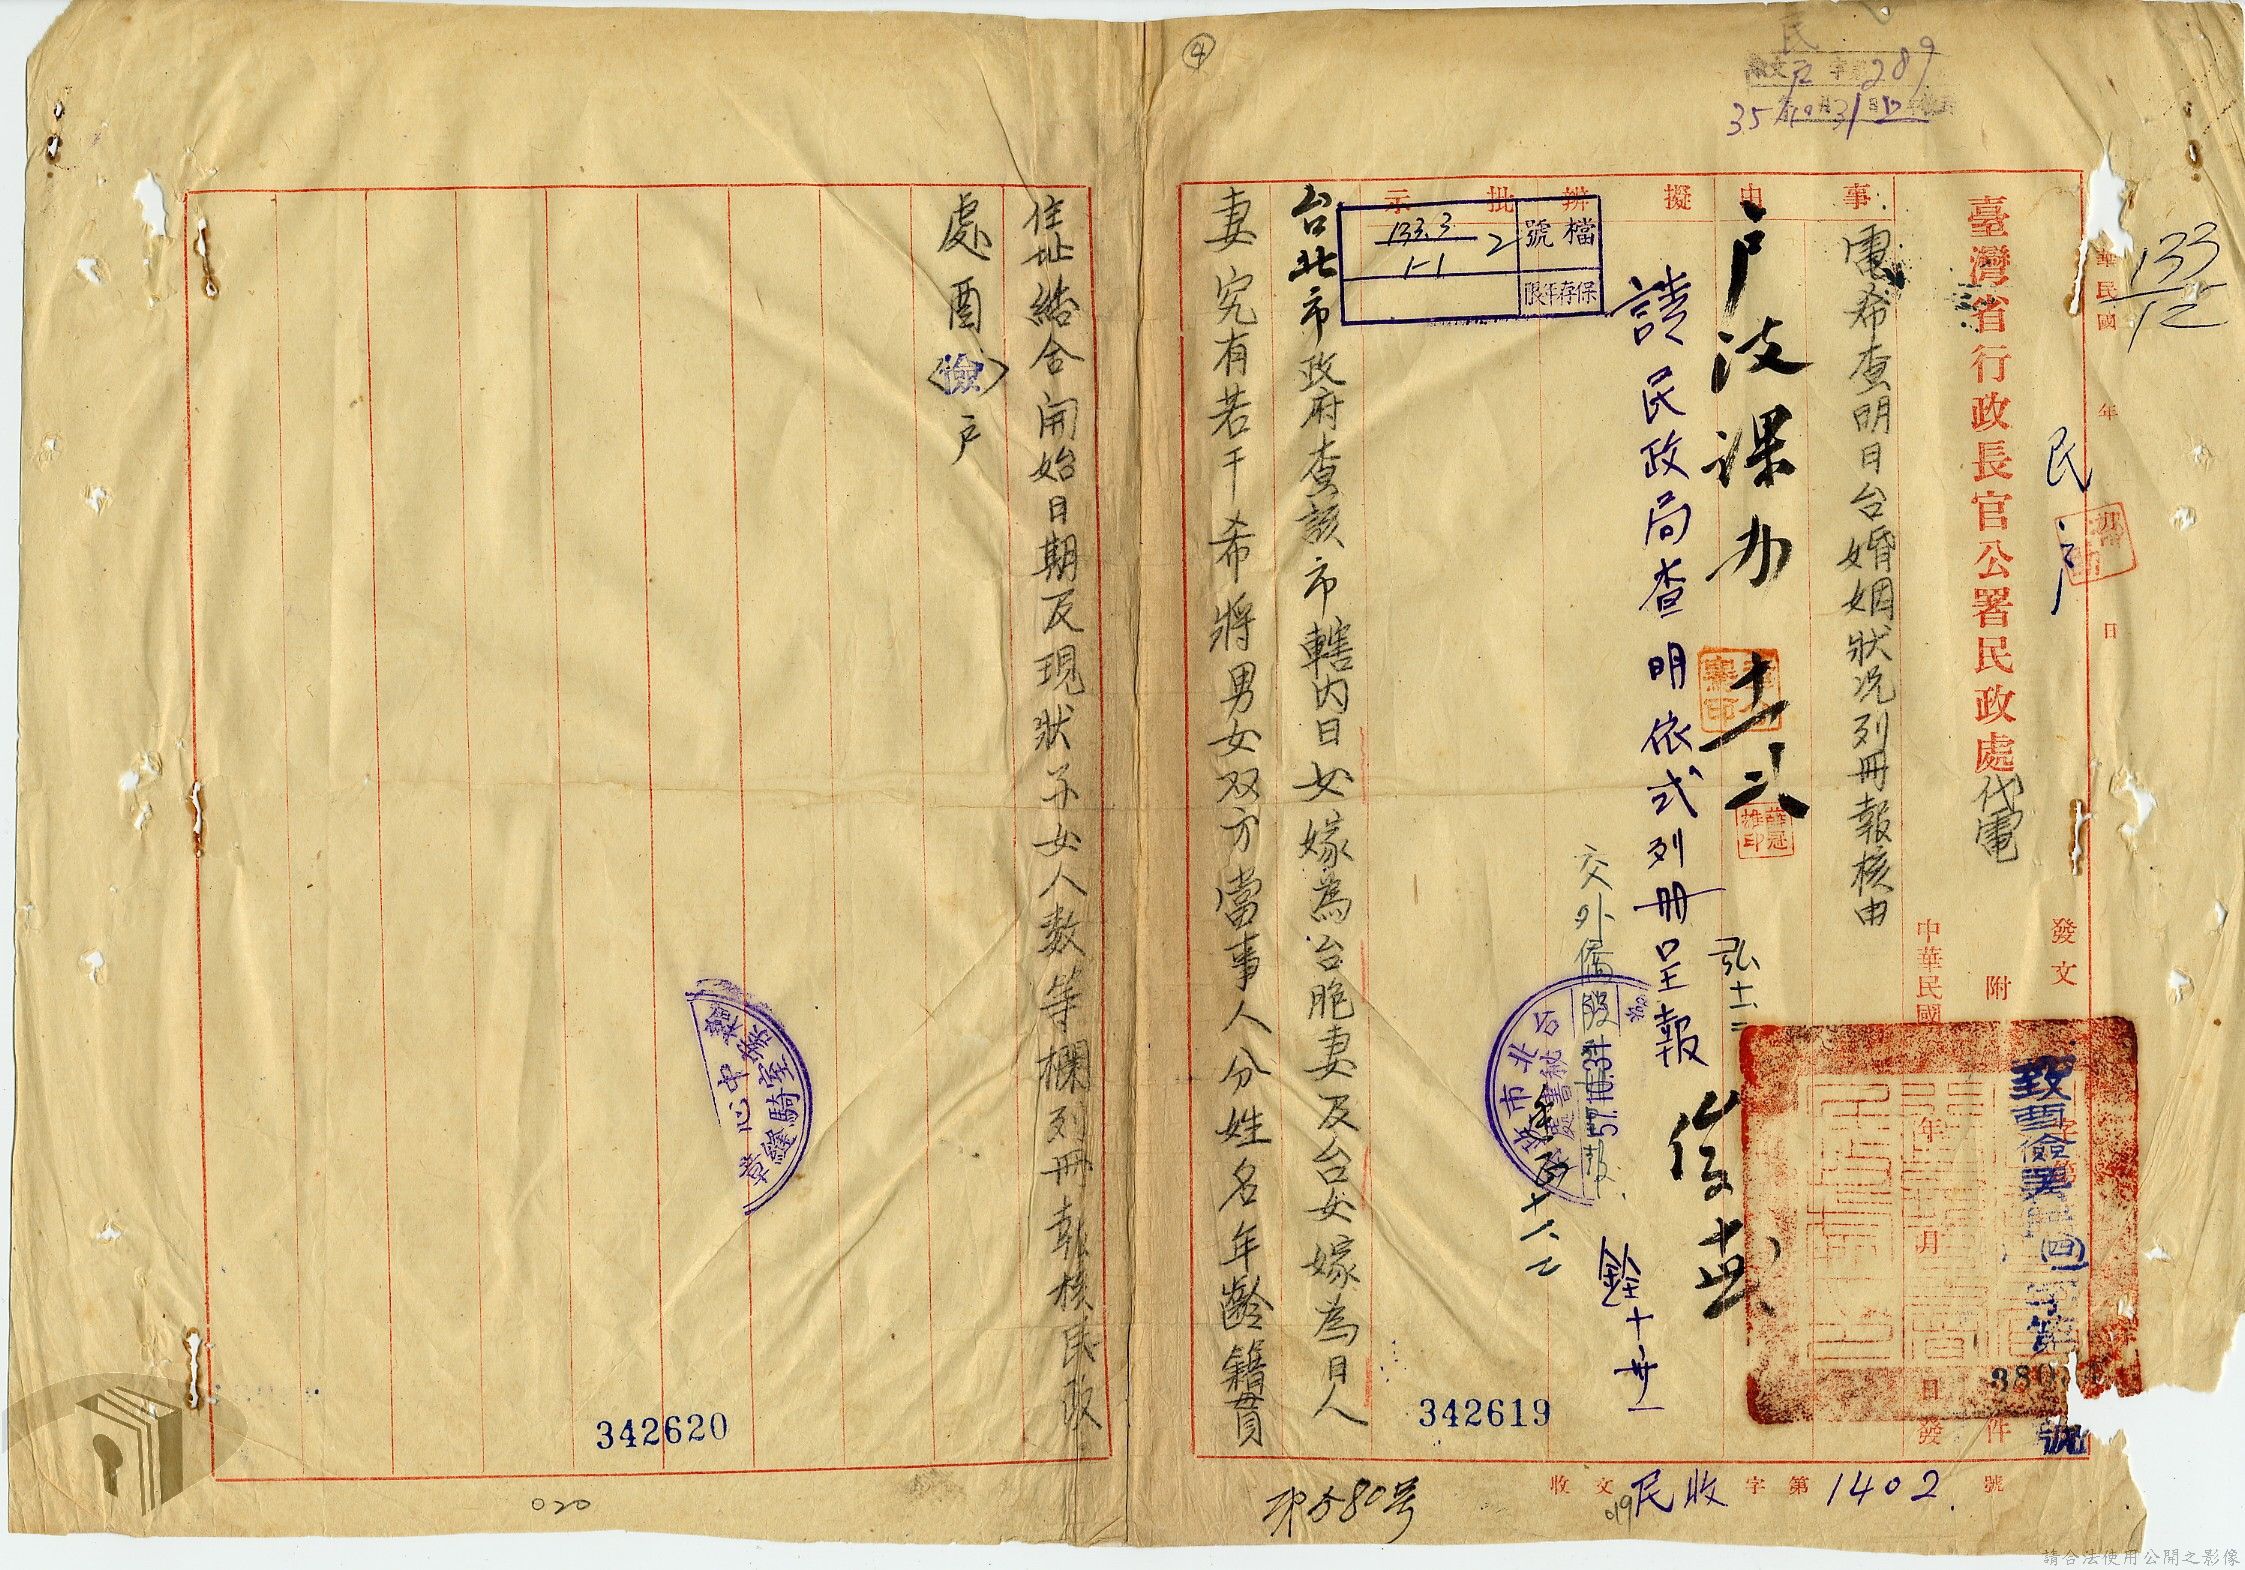 民
35 10 31
289
133
12
中華民國 年 月 日
民 戶
臺灣省行政長官公署民政處代電
發文 致酉儉 民(四)字第 號
附 件
中華民國 年 月 日發
事由
電希查明日台婚姻狀況列冊報核由
擬辦
批示
戶政課办 十一、六
弘 十一、二
請民政局查明依式列冊呈報
銓 十、卅一
交外僑股
57.10.31
十一、二
檔號 133.3 2
1-1
保存年限
台北市政府查該市轄內日女嫁為台胞妻及台女嫁為日人
妻究有若干希將男女双方當事人分姓名年齡籍貫
342619
收文 民收 字第 1402 號
019
第580号
④
住址結合開始日期及現狀子女人數等欄列冊報核民政
處酉〈儉〉戶
檔案中心
室騎縫章
342620
020
請合法使用公開之影像